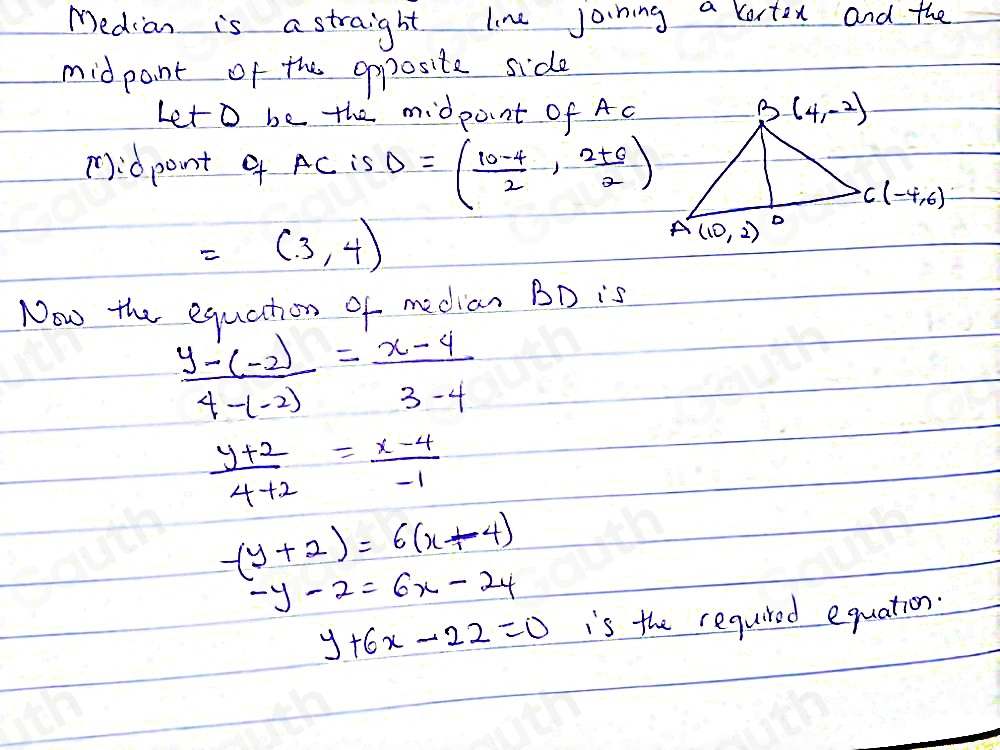 Median is a straight line joining a vertex and the
midpoint of the opposite side
Let D be the midpoint of AC
Midpoint of AC is D = ( (10-4)/2 , (2+6)/2 )
= (3, 4)
B (4,-2)
C(-4,6)
A (10, 2) D
Now the equation of median BD is
(y-(-2))/(4-(-2)) = (x-4)/(3-4)
(y+2)/(4+2) = (x-4)/(-1)
-(y+2) = 6(x-4)
-y-2 = 6x-24
y+6x-22=0 is the required equation.